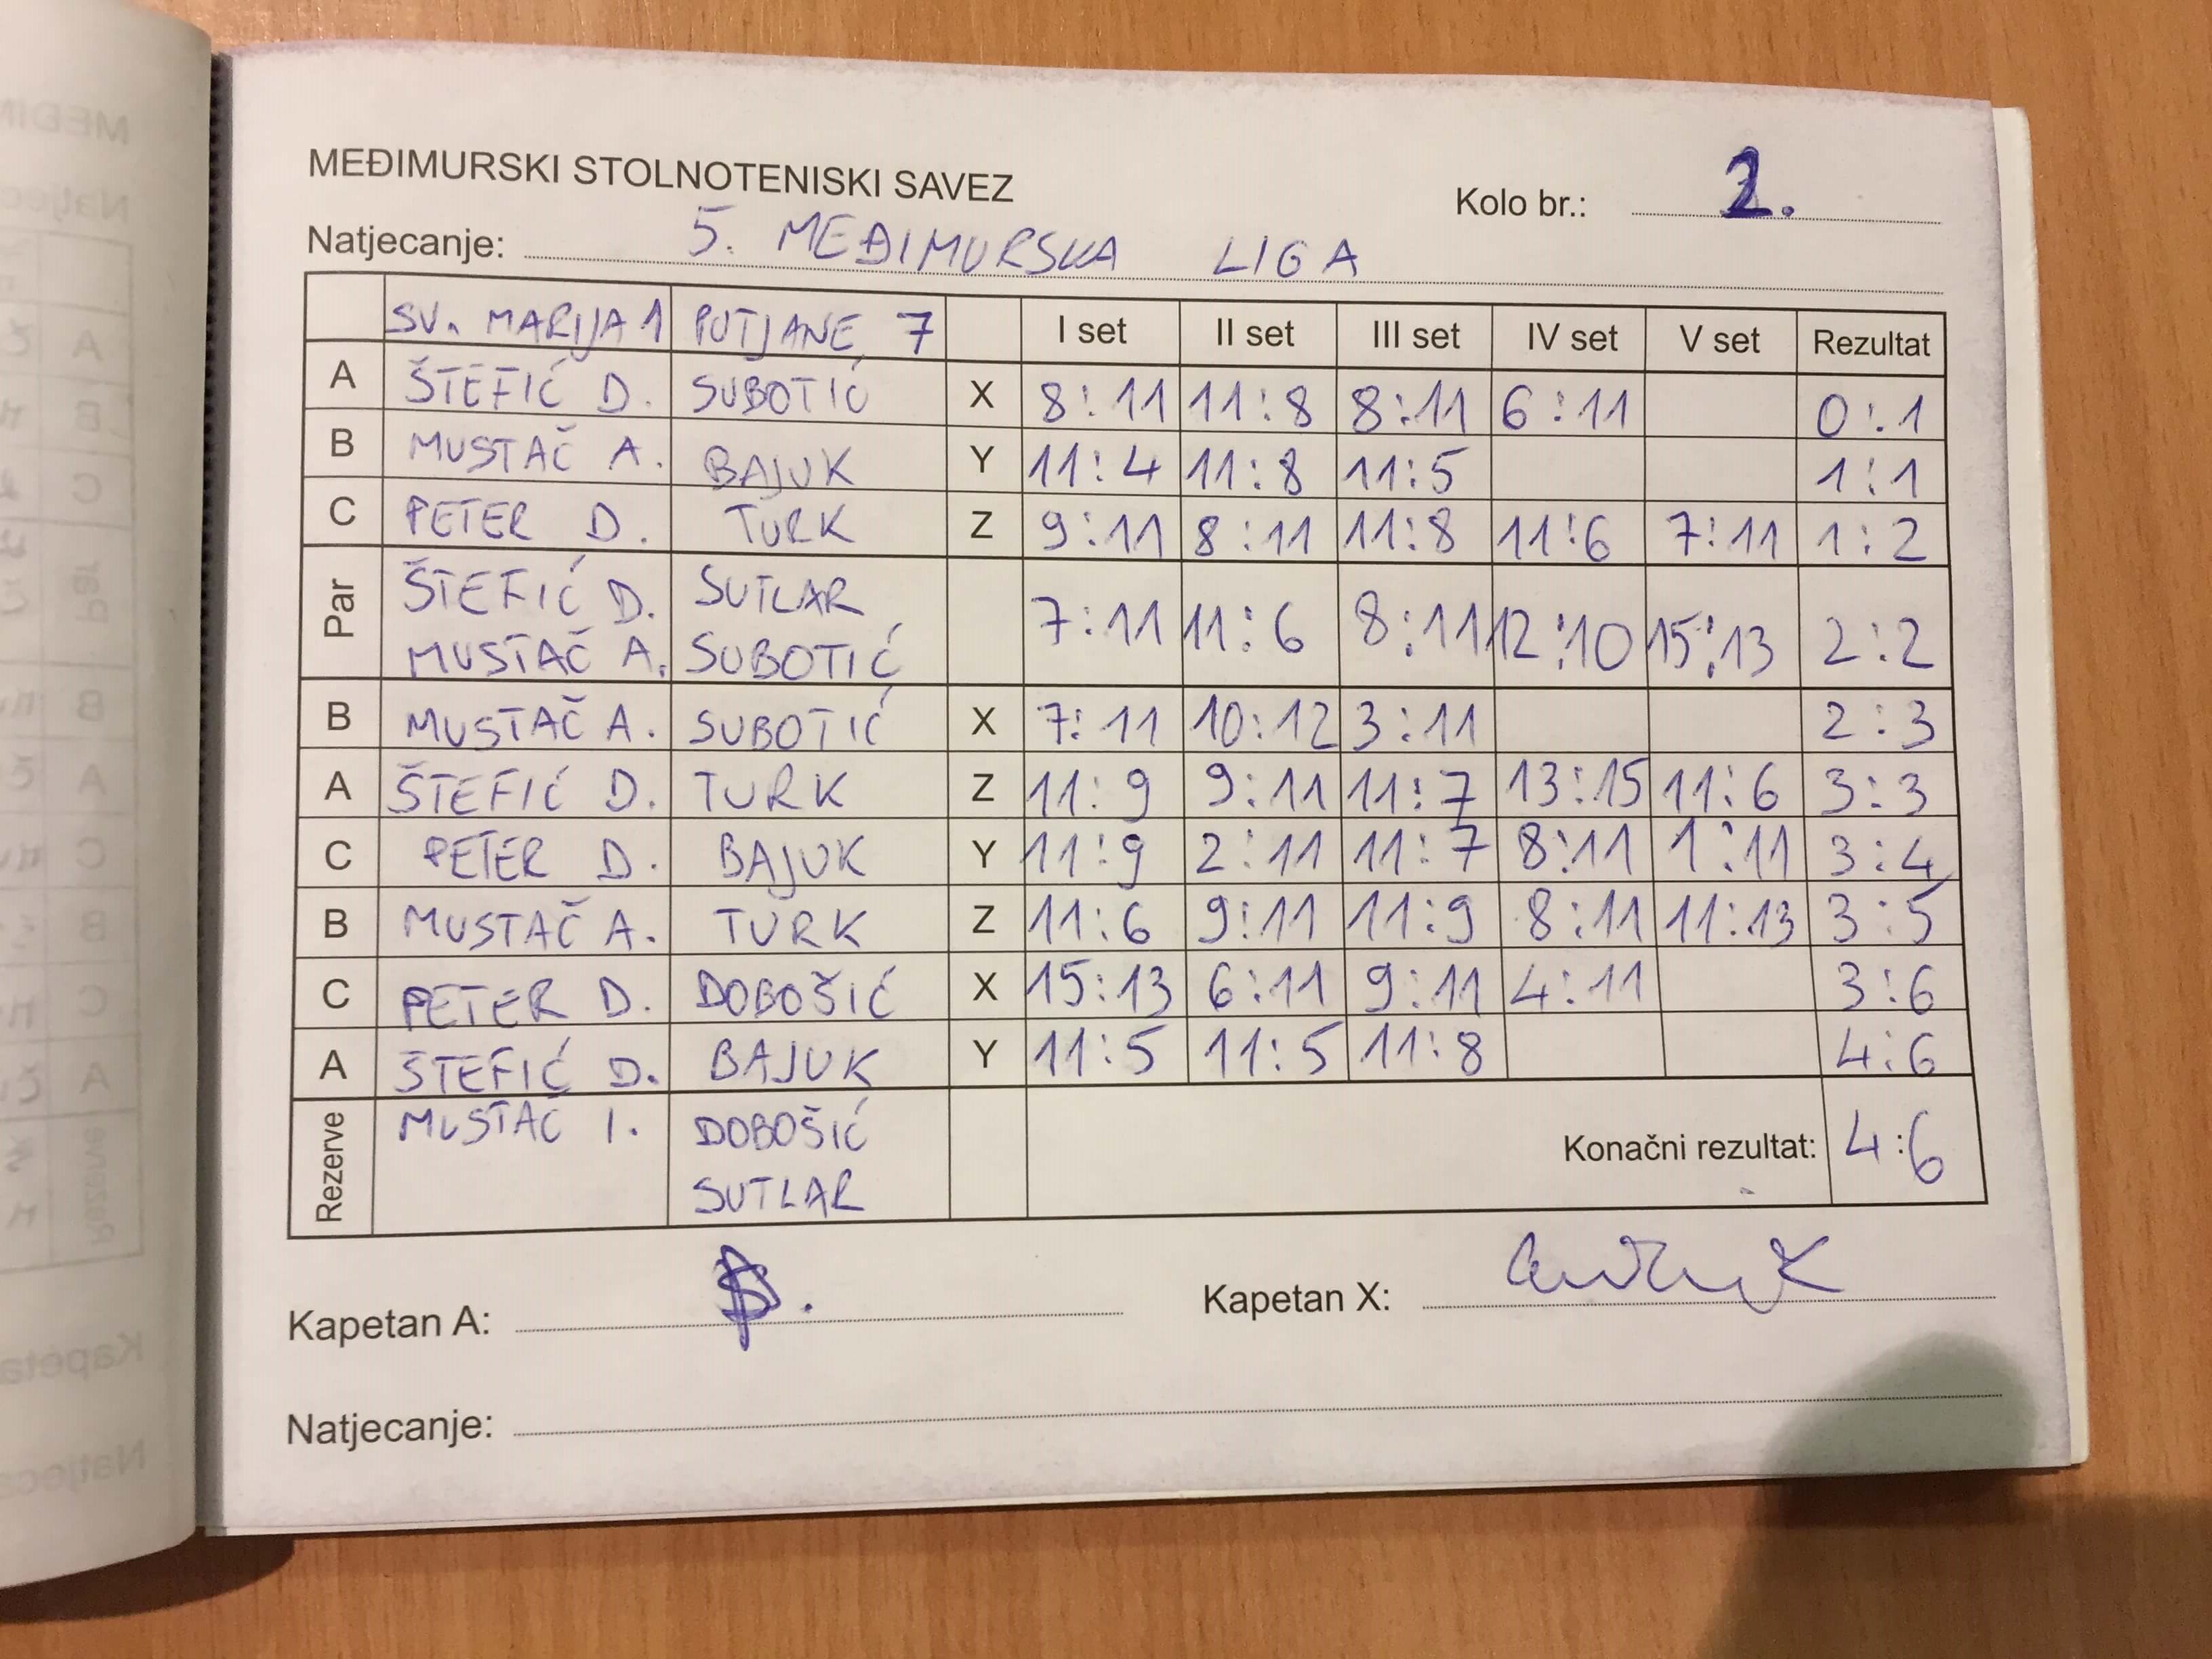 MEĐIMURSKI STOLNOTENISKI SAVEZ
Kolo br.: 2.
Natjecanje: 5. MEĐIMURSKA LIGA
SV. MARIJA 1 PUTJANE 7 I set II set III set IV set V set Rezultat
A ŠTEFIĆ D. SUBOTIĆ X 8:11 11:8 8:11 6:11 0:1
B MUSTAČ A. BAJUK Y 11:4 11:8 11:5 1:1
C PETER D. TURK Z 9:11 8:11 11:8 11:6 7:11 1:2
Par ŠTEFIĆ D. SUTLAR 7:11 11:6 8:11 12:10 15:13 2:2
MUSTAČ A. SUBOTIĆ
B MUSTAČ A. SUBOTIĆ X 7:11 10:12 3:11 2:3
A ŠTEFIĆ D. TURK Z 11:9 9:11 11:7 13:15 11:6 3:3
C PETER D. BAJUK Y 11:9 2:11 11:7 8:11 1:11 3:4
B MUSTAČ A. TURK Z 11:6 9:11 11:9 8:11 11:13 3:5
C PETER D. DOBOŠIĆ X 15:13 6:11 9:11 4:11 3:6
A ŠTEFIĆ D. BAJUK Y 11:5 11:5 11:8 4:6
Rezerve MUSTAČ I. DOBOŠIĆ Konačni rezultat: 4:6
SUTLAR
Kapetan A: Kapetan X:
Natjecanje: